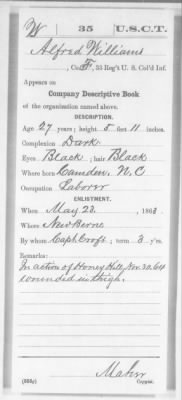 W 35 U.S.C.T.
Alfred Williams
, Co. F, 35 Reg't U. S. Col'd Inf.
Appears on
Company Descriptive Book
of the organization named above.
DESCRIPTION.
Age 27 years; height 5 feet 11 inches.
Complexion Dark
Eyes Black; hair Black
Where born Camden, N.C
Occupation Laborer
ENLISTMENT.
When May 22, 1863.
Where New Berne
By whom Capt. Croft; term 3 y'rs.
Remarks:
In action of Honey Hill, Nov. 30, 64
wounded in thigh.
(383g) Copyist.